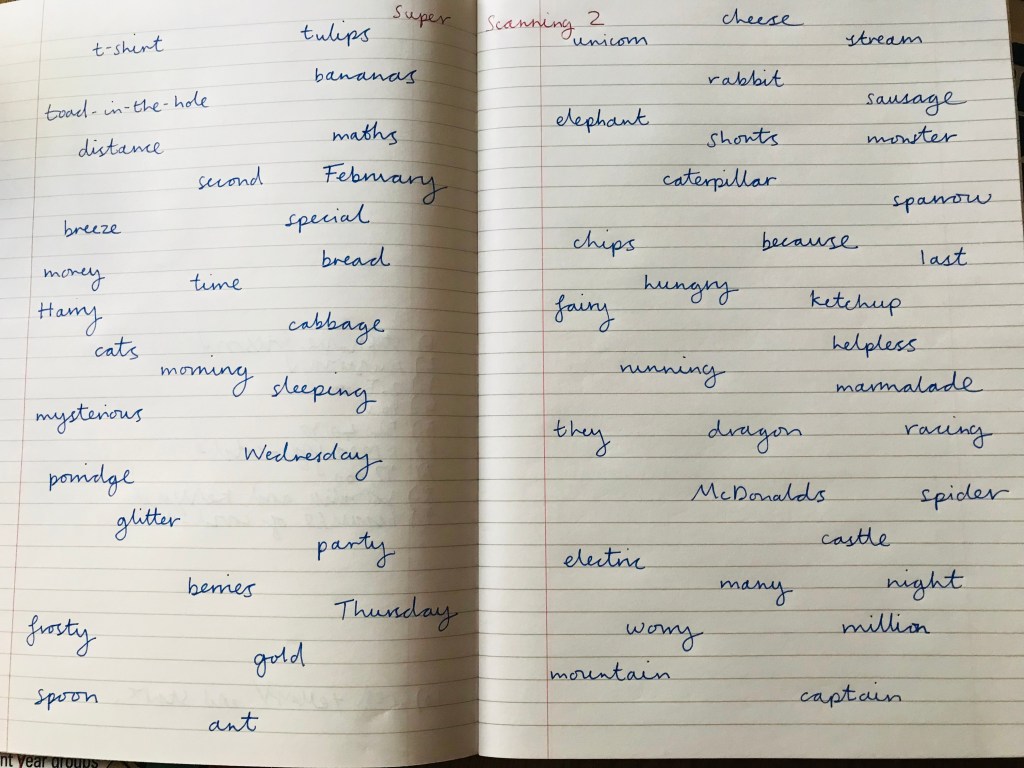 Super Scanning 2
t-shirt tulips
bananas
toad-in-the-hole
distance maths
second February
breeze special
money time bread
Harry cabbage
cats
morning sleeping
mysterious
Wednesday
porridge
glitter
party
berries
Thursday
frosty
gold
spoon
ant
cheese
unicorn stream
rabbit
sausage
elephant
shorts monster
caterpillar
sparrow
chips because
last
hungry
fairy ketchup
helpless
running
marmalade
they dragon racing
McDonalds spider
castle
electric
many night
worry million
mountain
captain
nt year groups